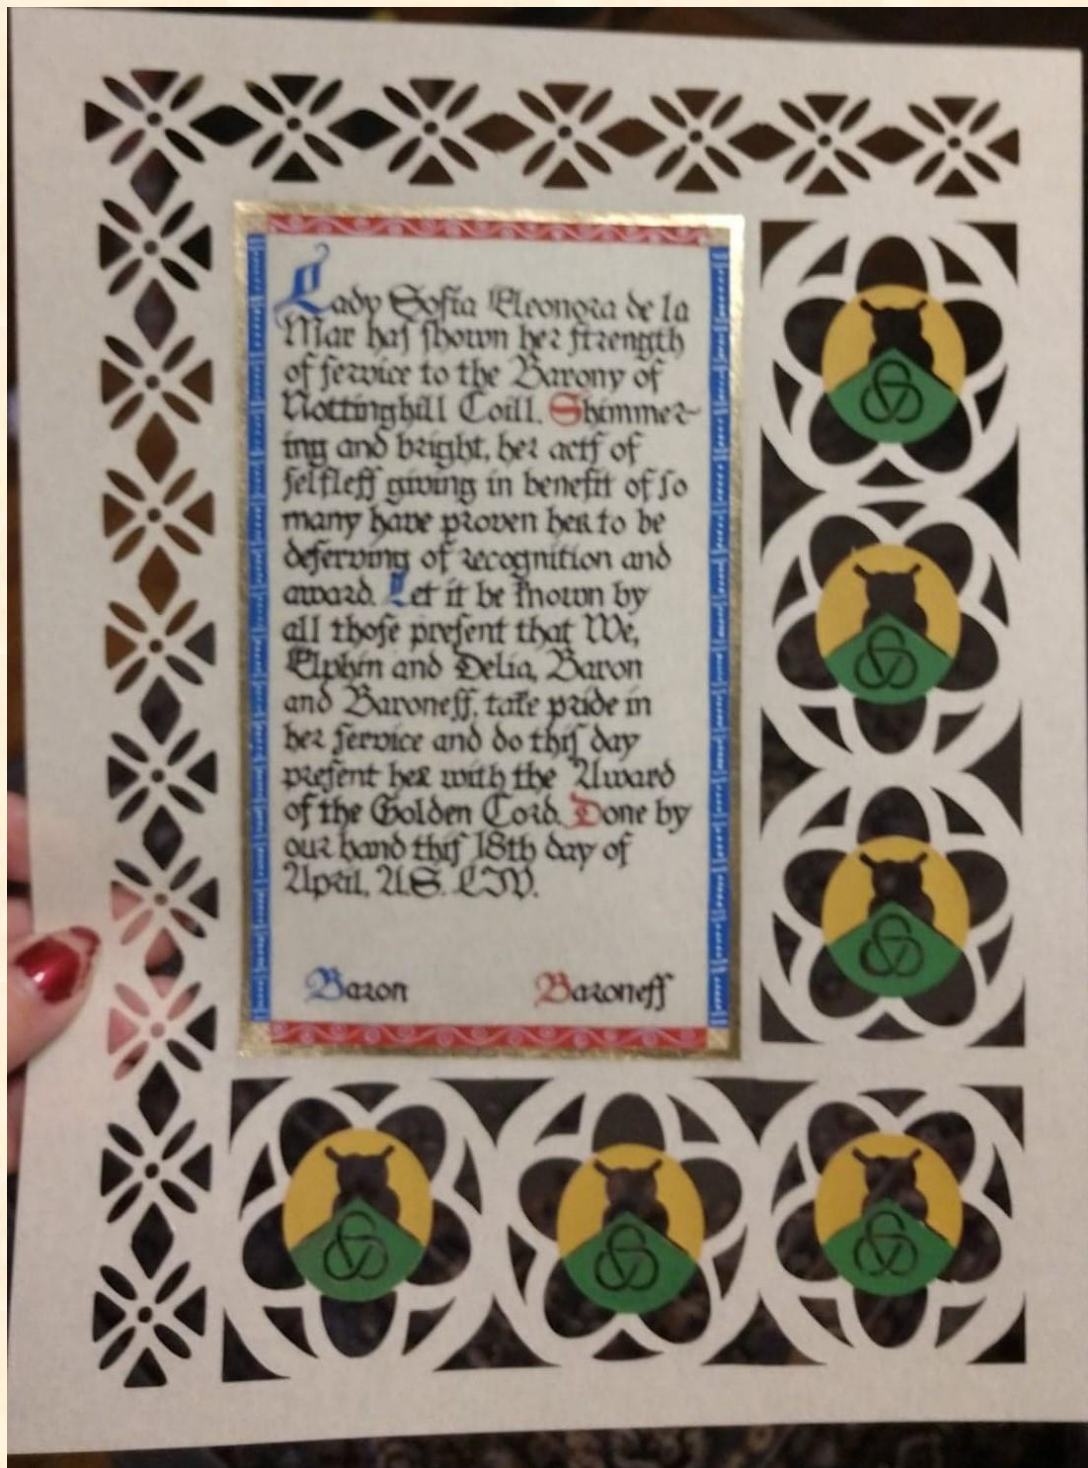 Lady Sofia Eleonora de la
Mar haſ ſhown her ſtrength
of ſervice to the Barony of
Nottinghill Coill. Shimmer-
ing and bright, her actſ of
ſelfleſſ giving in benefit of ſo
many have proven her to be
deſerving of recognition and
award. Let it be known by
all thoſe preſent that We,
Elphin and Delia, Baron
and Baroneſſ, take pride in
her ſervice and do thiſ day
preſent her with the Award
of the Golden Cord. Done by
our hand thiſ 18th day of
April, A.S. LIV.
Baron Baroneſſ